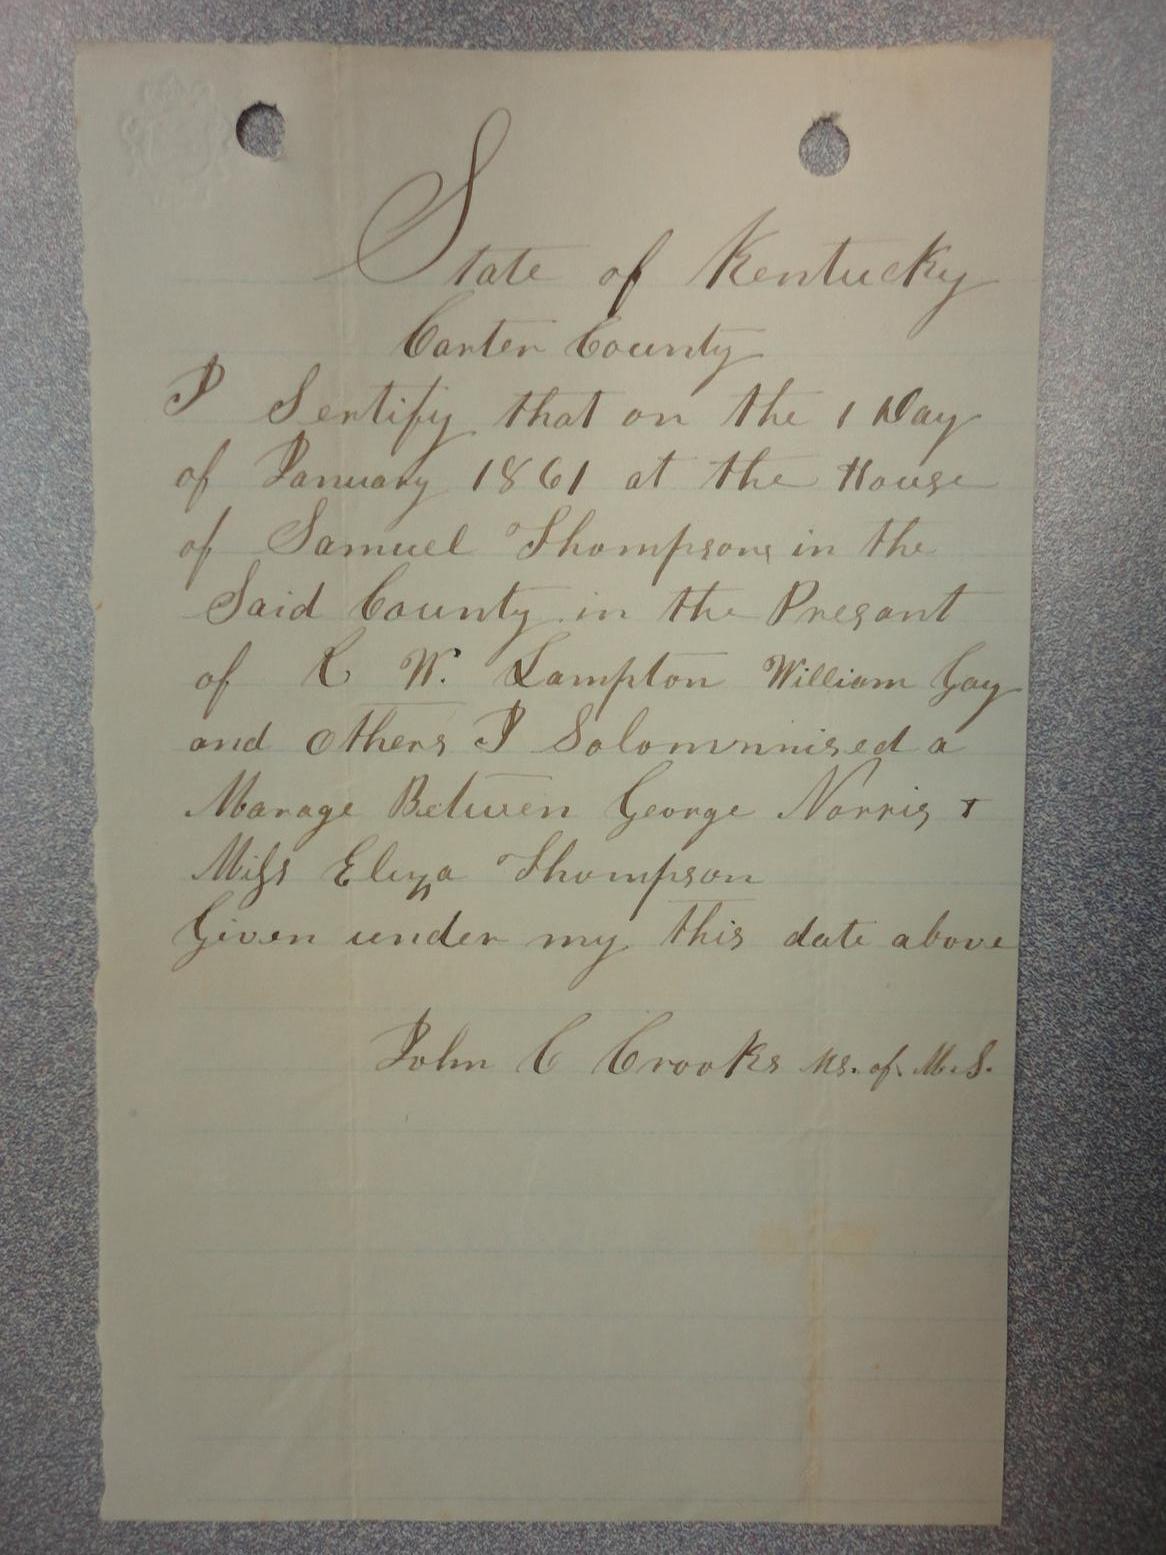 State of Kentucky
Carter County
I Sertify that on the 1 Day
of January 1861 at the House
of Samuel Thompsons in the
Said County in the Presant
of R W. Lampton William Gay
and others I Solomnnised a
Marage Between George Norris &
Miss Eliza Thompson
Given under my this date above
John C Crooks Ms. of M.S.